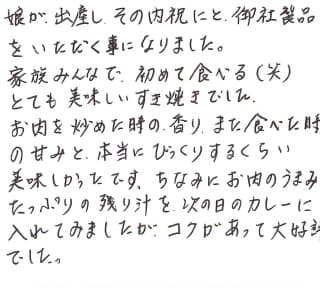 娘が、出産し、その内祝にと、御社製品
をいただく事になりました。
家族みんなで、初めて食べる(笑)
とても美味しいすき焼きでした。
お肉を炒めた時の、香り、また食べた時
の甘みと、本当にびっくりするくらい
美味しかったです、ちなみにお肉のうまみ
たっぷりの残り汁を、次の日のカレーに
入れてみましたが、コクがあって大好評
でした。